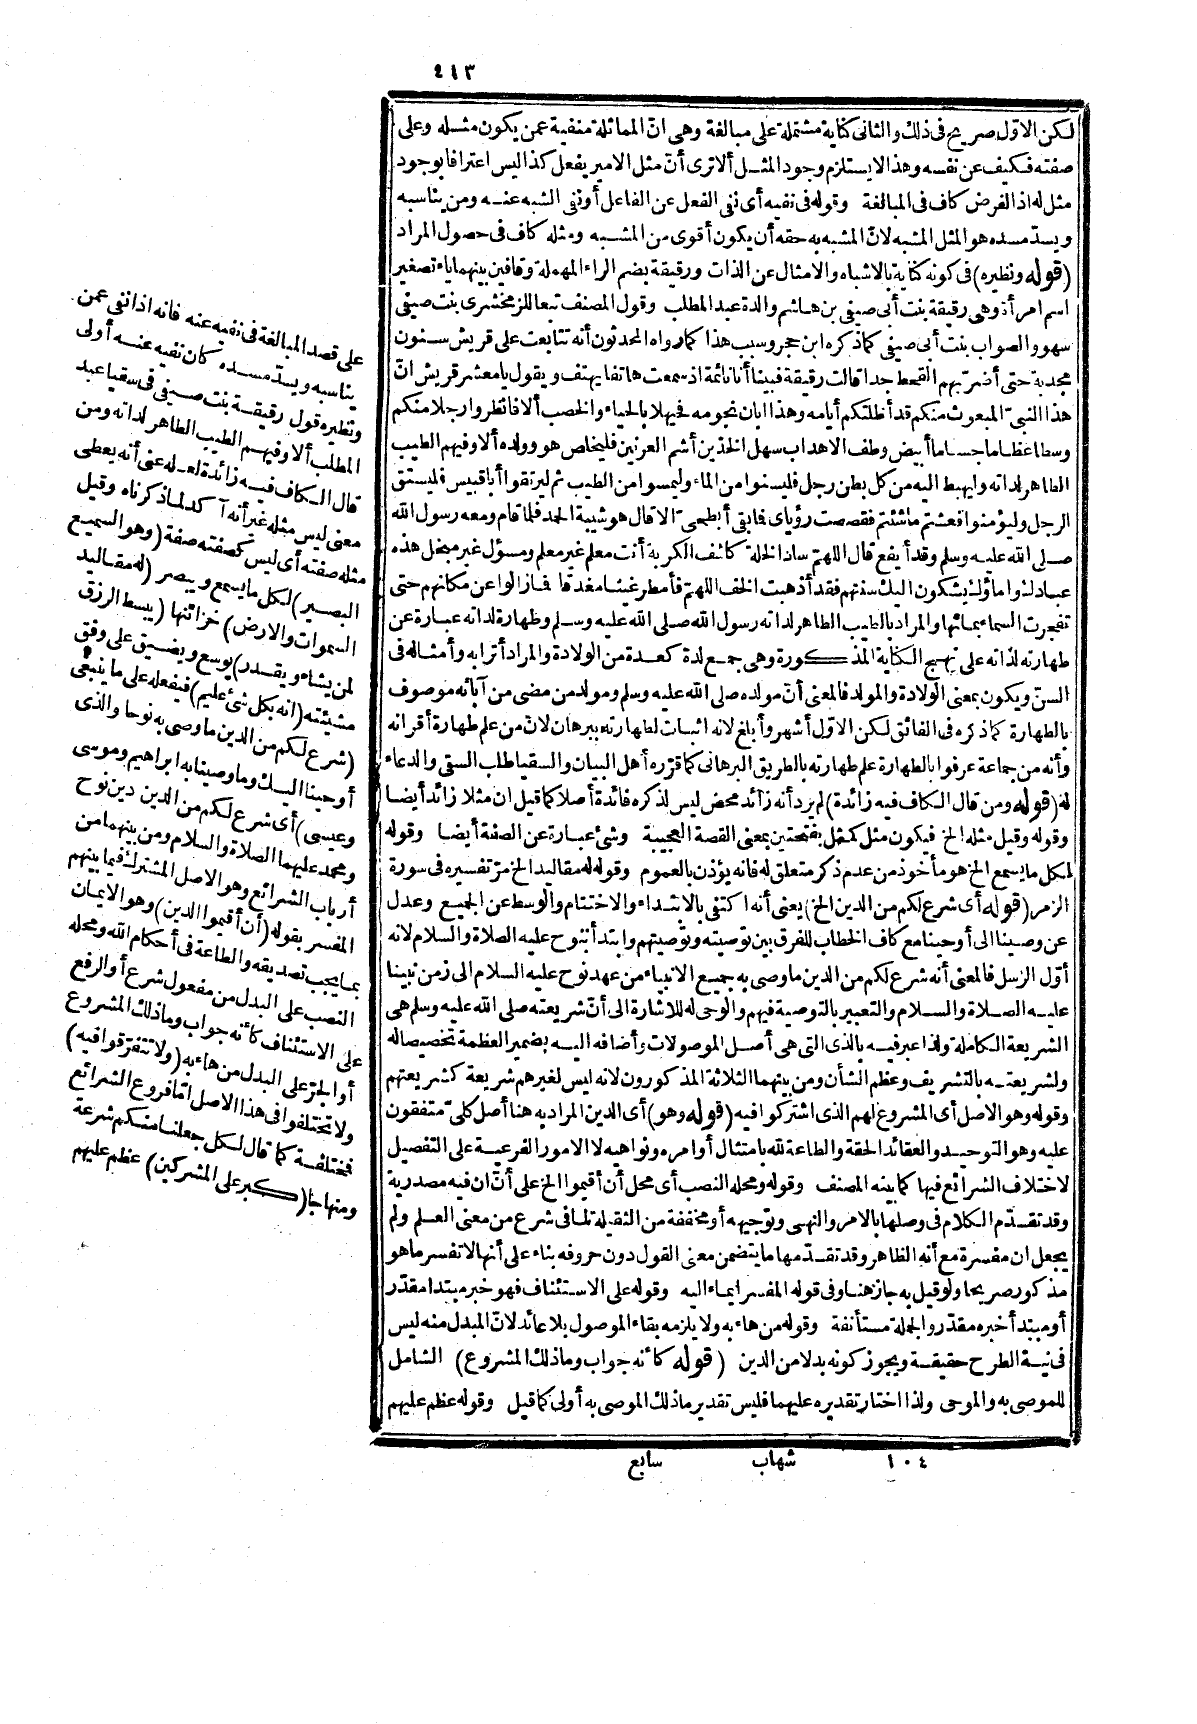 ٤١٣
لكن الاوّل صريح فى ذلك والثانى كناية مشتملة على مبالغة وهى انّ المماثلة منفية عمن يكون مثله وعلى
صفته فكيف عن نفسه وهذا لا يستلزم وجود المثل ألا ترى أنّ مثل الامير يفعل كذا ليس اعترافا بوجود
مثل له اذ الفرض كاف فى المبالغة وقوله فى نفيه أى نفى الفعل عن الفاعل أو نفى الشبه عنه ومن يناسبه
ويسدّ مسده هو المثل المشبه لانّ المشبه به حقه أن يكون أقوى من المشبه ومثله كاف فى حصول المراد
(قوله ونظيره) فى كونه كناية بالاشباه والامثال عن الذات ورقيقة بضم الراء المهملة وقافين بينهما ياء تصغير
اسم امرأة وهى رقيقة بنت أبى صيفى بن هاشم والدة عبد المطلب وقول المصنف تبعا للزمخشرى بنت صيفى
سهو والصواب بنت أبى صيفى كما ذكره ابن حجر وسبب هذا كما رواه المحدثون أنه تتابعت على قريش سنون
مجدبة حتى أضرّ بهم القحط جدا قالت رقيقة فبينا أنا نائمة اذ سمعت هاتفا يهتف ويقول يا معشر قريش انّ
هذا النبىّ المبعوث منكم قد أظلتكم أيامه وهذا ابان نجومه فحيهلا بالحياء والخصب ألا فانظروا رجلا منكم
وسطا عظاما جساما أبيض وطف الاهداب سهل الخدّين أشم العرنين فليخلص هو وولده ألا وفيهم الطيب
الطاهر لداته وليهبط اليه من كل بطن رجل فليسنوا من الماء وليمسوا من الطيب ثم ليرتقوا أبا قبيس فليستق
الرجل وليؤمنوا فعشتم ما شئتم فقصصت رؤياى فما بقى أبطحىّ الا قال هو شيبة الحمد فلما قام ومعه رسول الله
صلى الله عليه وسلم وقد أيفع قال اللهم ساد الخلة كاشف الكربة أنت معلم غير معلم ومسؤل غير مبخل هذه
عبادك واماؤك يشكون اليك سنتهم فقد أذهبت الخف اللهم فأمطر غيثا مغدقا فما زالوا عن مكانهم حتى
تفجرت السماء بمائها والمراد بالطيب الطاهر لداته رسول الله صلى الله عليه وسلم وطهارة لداته عبارة عن
طهارته لذاته على نهج الكناية المذكورة وهى جمع لدة كعدة من الولادة والمراد أترابه وأمثاله فى
السنّ ويكون بمعنى الولادة والمولد فالمعنى أنّ مولده صلى الله عليه وسلم ومولد من مضى من آبائه موصوف
بالطهارة كما ذكره فى الفائق لكن الاوّل أشهر وأبلغ لانه اثبات لطهارته ببرهان لانّ من علم طهارة أقرانه
وأنه من جماعة عرفوا بالطهارة علم طهارته بالطريق البرهانى كما قرّره أهل البيان والسقيا طلب السقى والدعاء
له (قوله ومن قال الكاف فيه زائدة) لم يرد أنه زائد محض ليس لذكره فائدة أصلا كما قيل ان مثلا زائد أيضا
وقوله وقيل مثله الخ فيكون مثل كمثل بفتحتين بمعنى القصة العجيبة وشئ عبارة عن الصفة أيضا وقوله
لكل ما يسمع الخ هو مأخوذ من عدم ذكر متعلق له فانه يؤذن بالعموم وقوله له مقاليد الخ مرّ تفسيره فى سورة
الزمر (قوله أى شرع لكم من الدين الخ) يعنى أنه اكتفى بالابتداء والاختتام والوسط عن الجميع وعدل
عن وصينا الى أوحينا مع كاف الخطاب للفرق بين توصيته وتوصيتهم وابتدأ بنوح عليه الصلاة والسلام لانه
أوّل الرسل فالمعنى أنه شرع لكم من الدين ما وصى به جميع الانبياء من عهد نوح عليه السلام الى زمن نبينا
عليه الصلاة والسلام والتعبير بالتوصية فيهم والوحى له للاشارة الى أنّ شريعته صلى الله عليه وسلم هى
الشريعة الكاملة ولذا عبر فيه بالذى التى هى أصل الموصولات وأضافه اليه بضمير العظمة تخصيصا له
ولشريعته بالتشريف وعظم الشأن ومن بينهما الثلاثة المذكورون لانه ليس لغيرهم شريعة كشريعتهم
وقوله وهو الاصل أى المشروع لهم الذى اشتركوا فيه (قوله وهو) أى الدين المراد به هنا أصل كلىّ متفقون
عليه وهو التوحيد والعقائد الحقة والطاعة لله بامتثال أوامره ونواهيه لا الامور الفرعية على التفصيل
لاختلاف الشرائع فيها كما بينه المصنف وقوله ومحله النصب أى محل أن أقيموا الخ على أنّ ان فيه مصدرية
وقد تقدّم الكلام فى وصلها بالامر والنهى وتوجيهه أو مخففة من الثقيلة لما فى شرع من معنى العلم ولم
يجعل ان مفسرة مع أنه الظاهر وقد تقدّمها ما يتضمن معنى القول دون حروفه بناء على أنها لا تفسر ما هو
مذكور صريحا ولو قيل به جاز هنا وفى قوله المفسر ايماء اليه وقوله على الاستئناف فهو خبر مبتدا مقدّر
أو مبتدأ خبره مقدّر والجملة مستأنفة وقوله من هاء به ولا يلزمه بقاء الموصول بلا عائد لانّ المبدل منه ليس
فى نية الطرح حقيقة ويجوز كونه بدلا من الدين (قوله كأنه جواب وما ذلك المشروع) الشامل
للموصى به والموحى ولذا اختار تقديره عليهما فليس تقدير ما ذلك الموصى به أولى كما قيل وقوله عظم عليهم
على قصد المبالغة فى نفيه عنه فانه اذا نفى عمن
يناسبه ويسدّ مسده كان نفيه عنه أولى
ونظيره قول رقيقة بنت صيفى فى سقيا عبد
المطلب ألا وفيهم الطيب الطاهر لداته ومن
قال الكاف فيه زائدة لعله عنى أنه يعطى
معنى ليس مثله غير أنه آكد لما ذكرناه وقيل
مثله صفته أى ليس كصفته صفة (وهو السميع
البصير) لكل ما يسمع ويبصر (له مقاليد
السموات والارض) خزائنها (يبسط الرزق
لمن يشاء ويقدر) يوسع ويضيق على وفق
مشيئته (انه بكل شئ عليم) فيفعله على ما ينبغى
(شرع لكم من الدين ما وصى به نوحا والذى
أوحينا اليك وما وصينا به ابراهيم وموسى
وعيسى) أى شرع لكم من الدين دين نوح
ومحمد عليهما الصلاة والسلام ومن بينهما من
أرباب الشرائع وهو الاصل المشترك فيما بينهم
المفسر بقوله (أن أقيموا الدين) وهو الايمان
بما يجب تصديقه والطاعة فى أحكام الله ومحله
النصب على البدل من مفعول شرع أو الرفع
على الاستئناف كأنه جواب وما ذلك المشروع
أو الجرّ على البدل من هاء به (ولا تتفرّقوا فيه)
ولا تختلفوا فى هذا الاصل امّا فروع الشرائع
فمختلفة كما قال لكل جعلنا منكم شرعة
ومنهاجا (كبر على المشركين) عظم عليهم
١٠٤ شهاب سابع